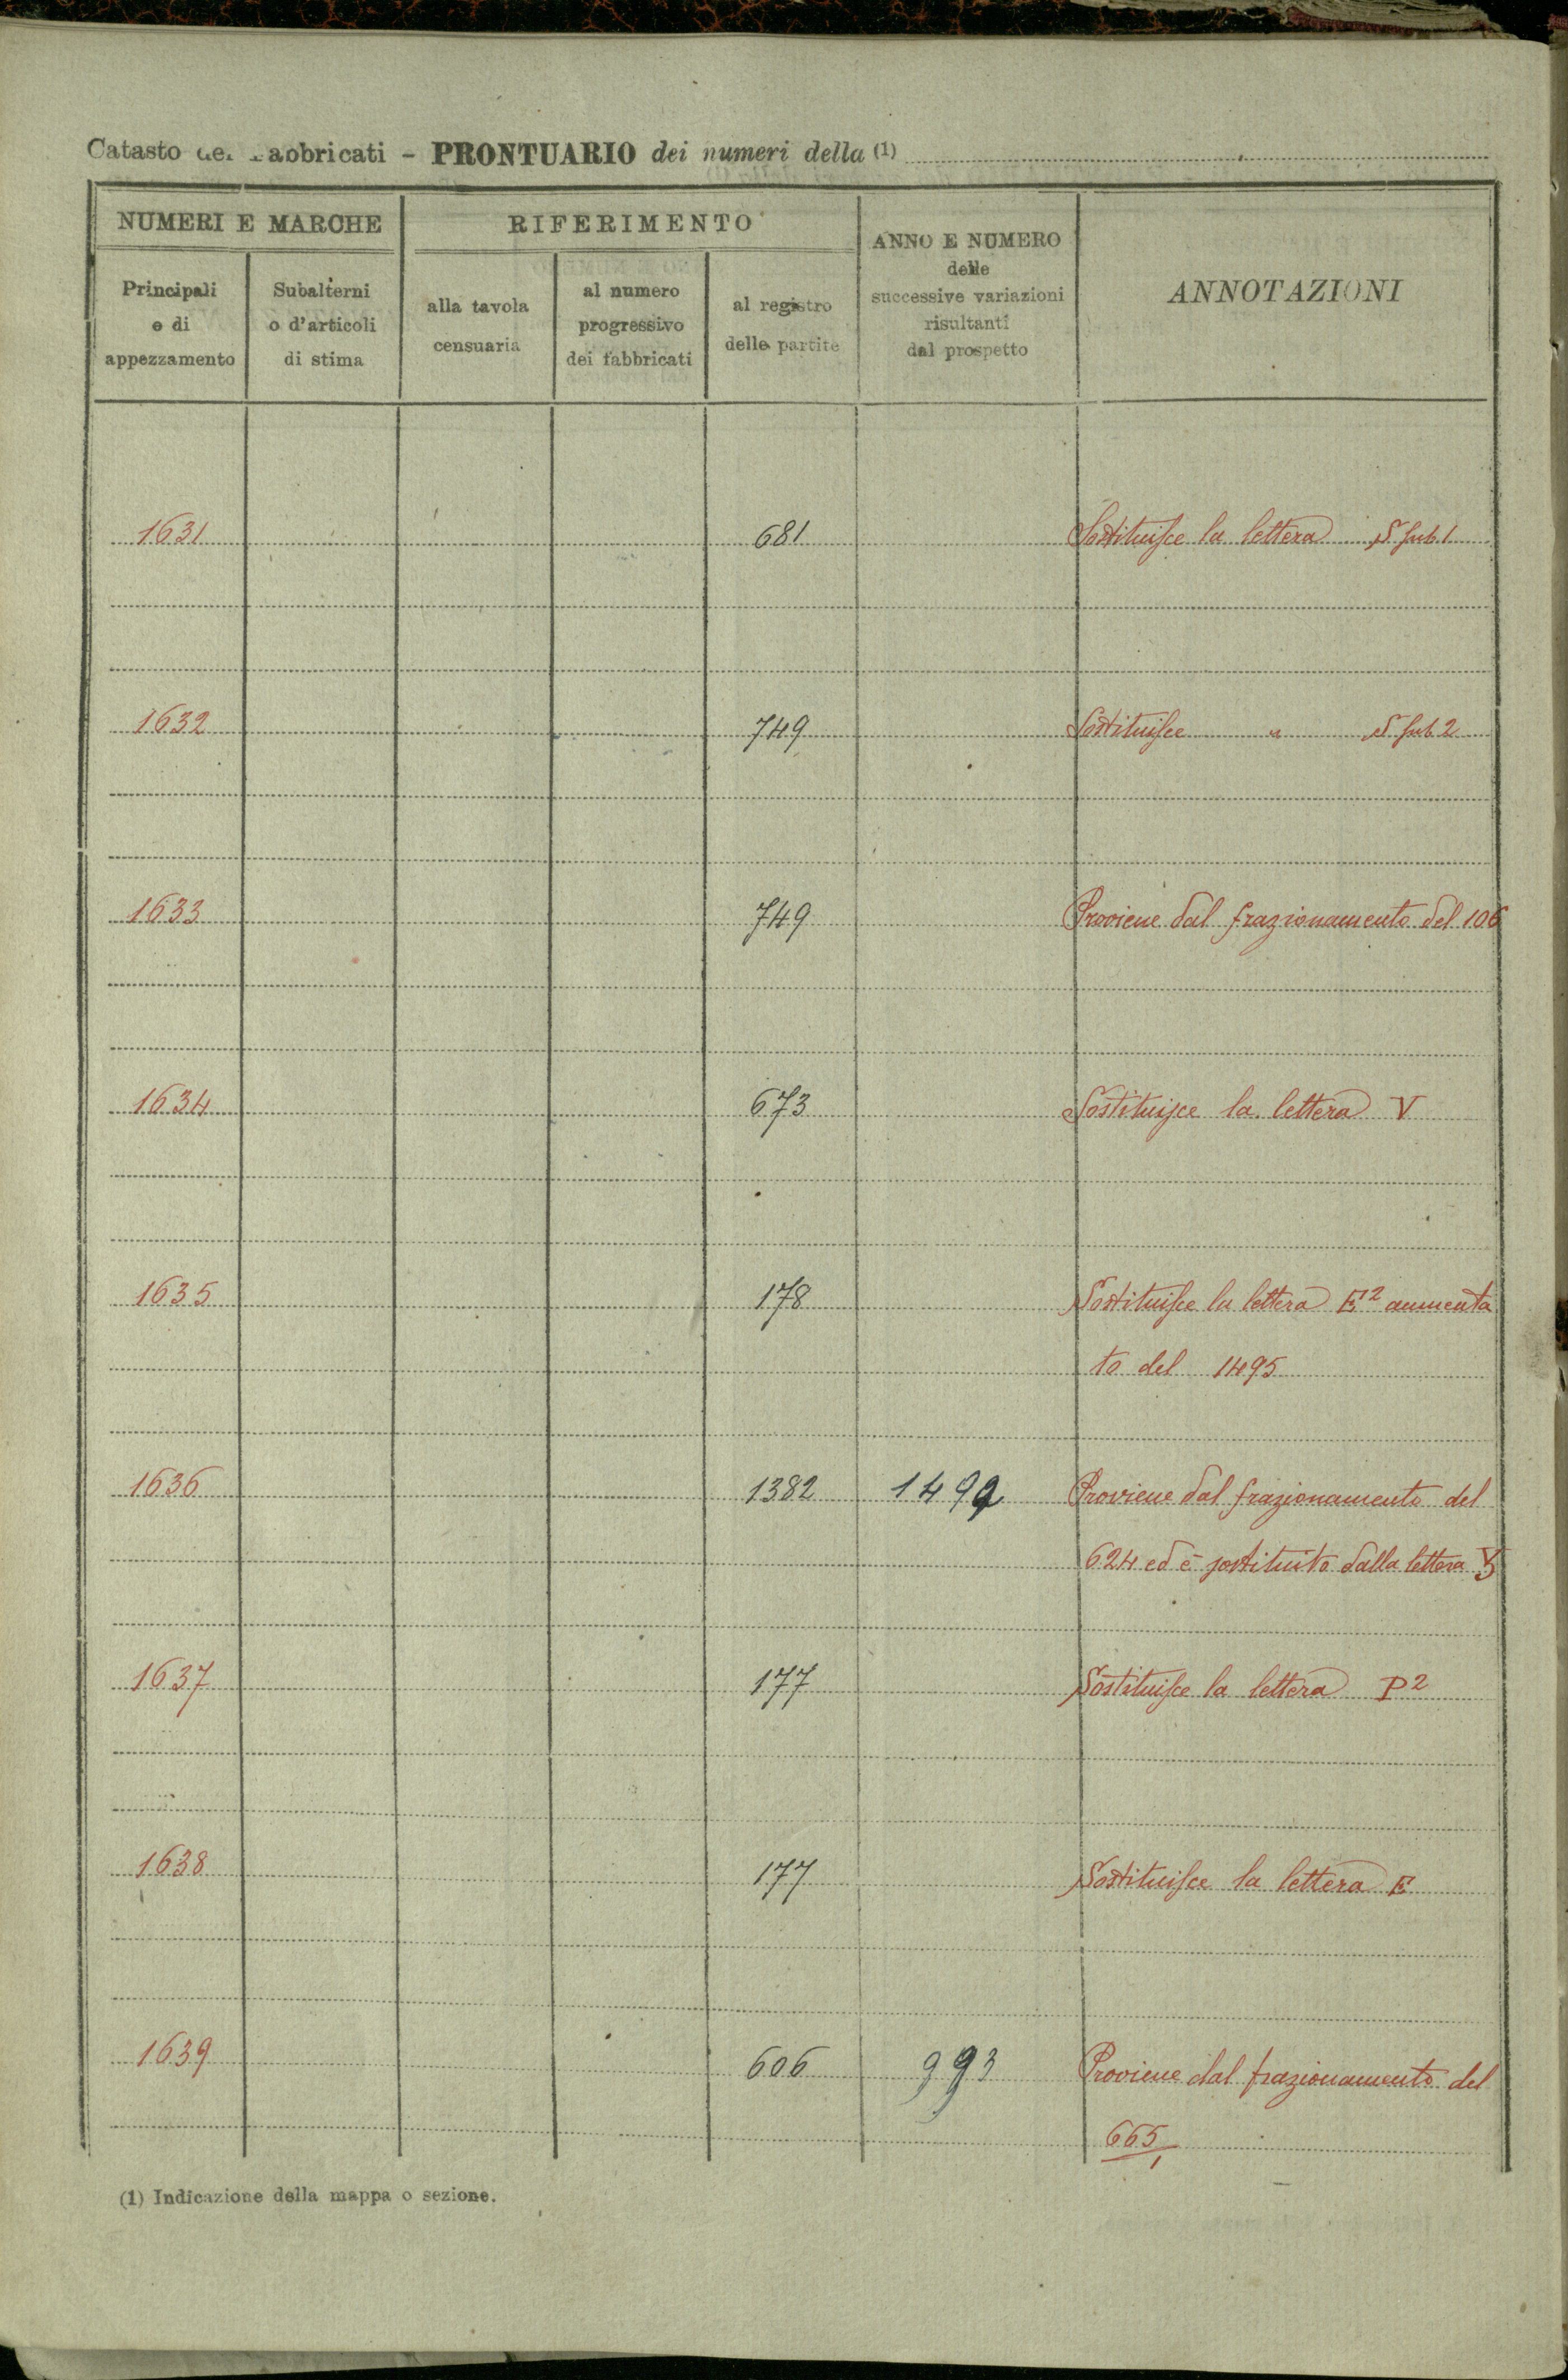 Catasto dei Fabbricati - PRONTUARIO dei numeri della (1)
NUMERI E MARCHE
RIFERIMENTO
ANNO E NUMERO
delle
successive variazioni
risultanti
dal prospetto
ANNOTAZIONI
Principali
e di
appezzamento
Subalterni
o d'articoli
di stima
alla tavola
censuaria
al numero
progressivo
dei fabbricati
al registro
delle partite
1631 681 Sostituisce la lettera S sub 1
1632 749 Sostituisce " S sub 2
1633 749 Proviene dal frazionamento del 106
1634 673 Sostituisce la lettera V
1635 178 Sostituisce la lettera E² aumenta
to del 1495
1636 1382 1492 Proviene dal frazionamento del
624 ed è sostituito dalla lettera
1637 177 Sostituisce la lettera P²
1638 177 Sostituisce la lettera E
1639 606 993 Proviene dal frazionamento del
665
(1) Indicazione della mappa o sezione.